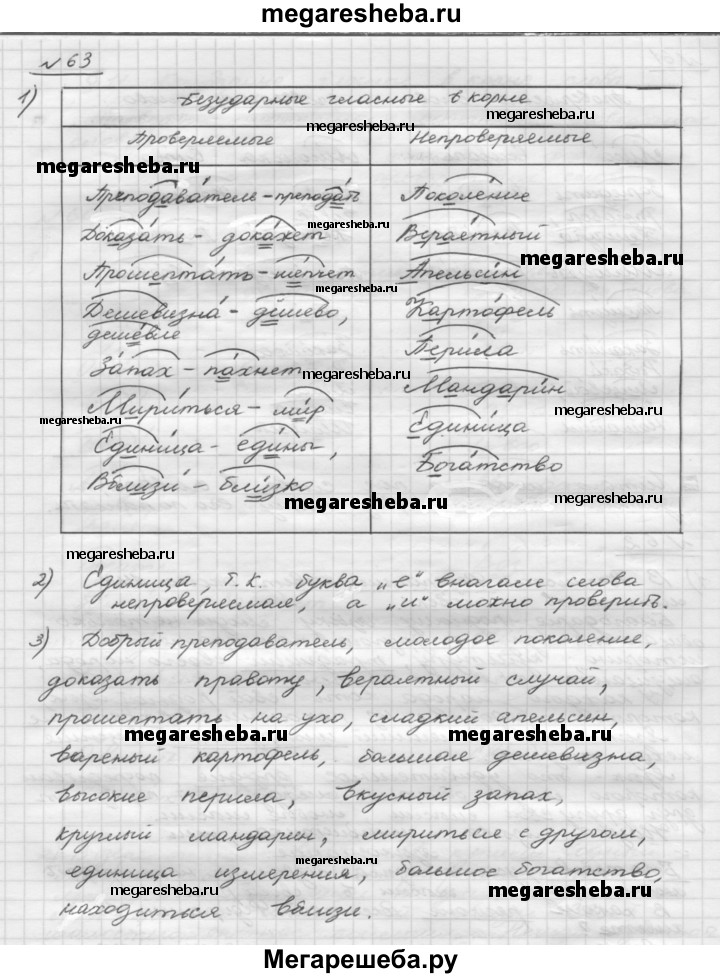 megaresheba.ru
№ 63
1)
Безударные гласные в корне
megaresheba.ru
Проверяемые
Непроверяемые
megaresheba.ru
megaresheba.ru
Преподаватель - преподать
Поколение
megaresheba.ru
Доказать - докажет
Вераятный
megaresheba.ru
Прошептать - шепчет
Апельсин
megaresheba.ru
Дешевизна - дёшево,
Картофель
дешевле
Перила
Запах - пахнет
megaresheba.ru
Мандарин
Мириться - мир
megaresheba.ru
megaresheba.ru
Единица - едины,
Единица
Вблизи - близко
Богатство
megaresheba.ru
megaresheba.ru
megaresheba.ru
2) Единица, т.к. буква „е" вначале слова
непроверяемая, а „и" можно проверить.
3) Добрый преподаватель, молодое поколение,
доказать правоту, вераятный случай,
прошептать на ухо, сладкий апельсин,
megaresheba.ru
megaresheba.ru
вареный картофель, большая дешевизна,
высокие перила, вкусный запах,
круглый мандарин, мириться с другом,
megaresheba.ru
единица измерения, большое богатство,
megaresheba.ru
megaresheba.ru
находиться вблизи.
Мегарешеба.ру